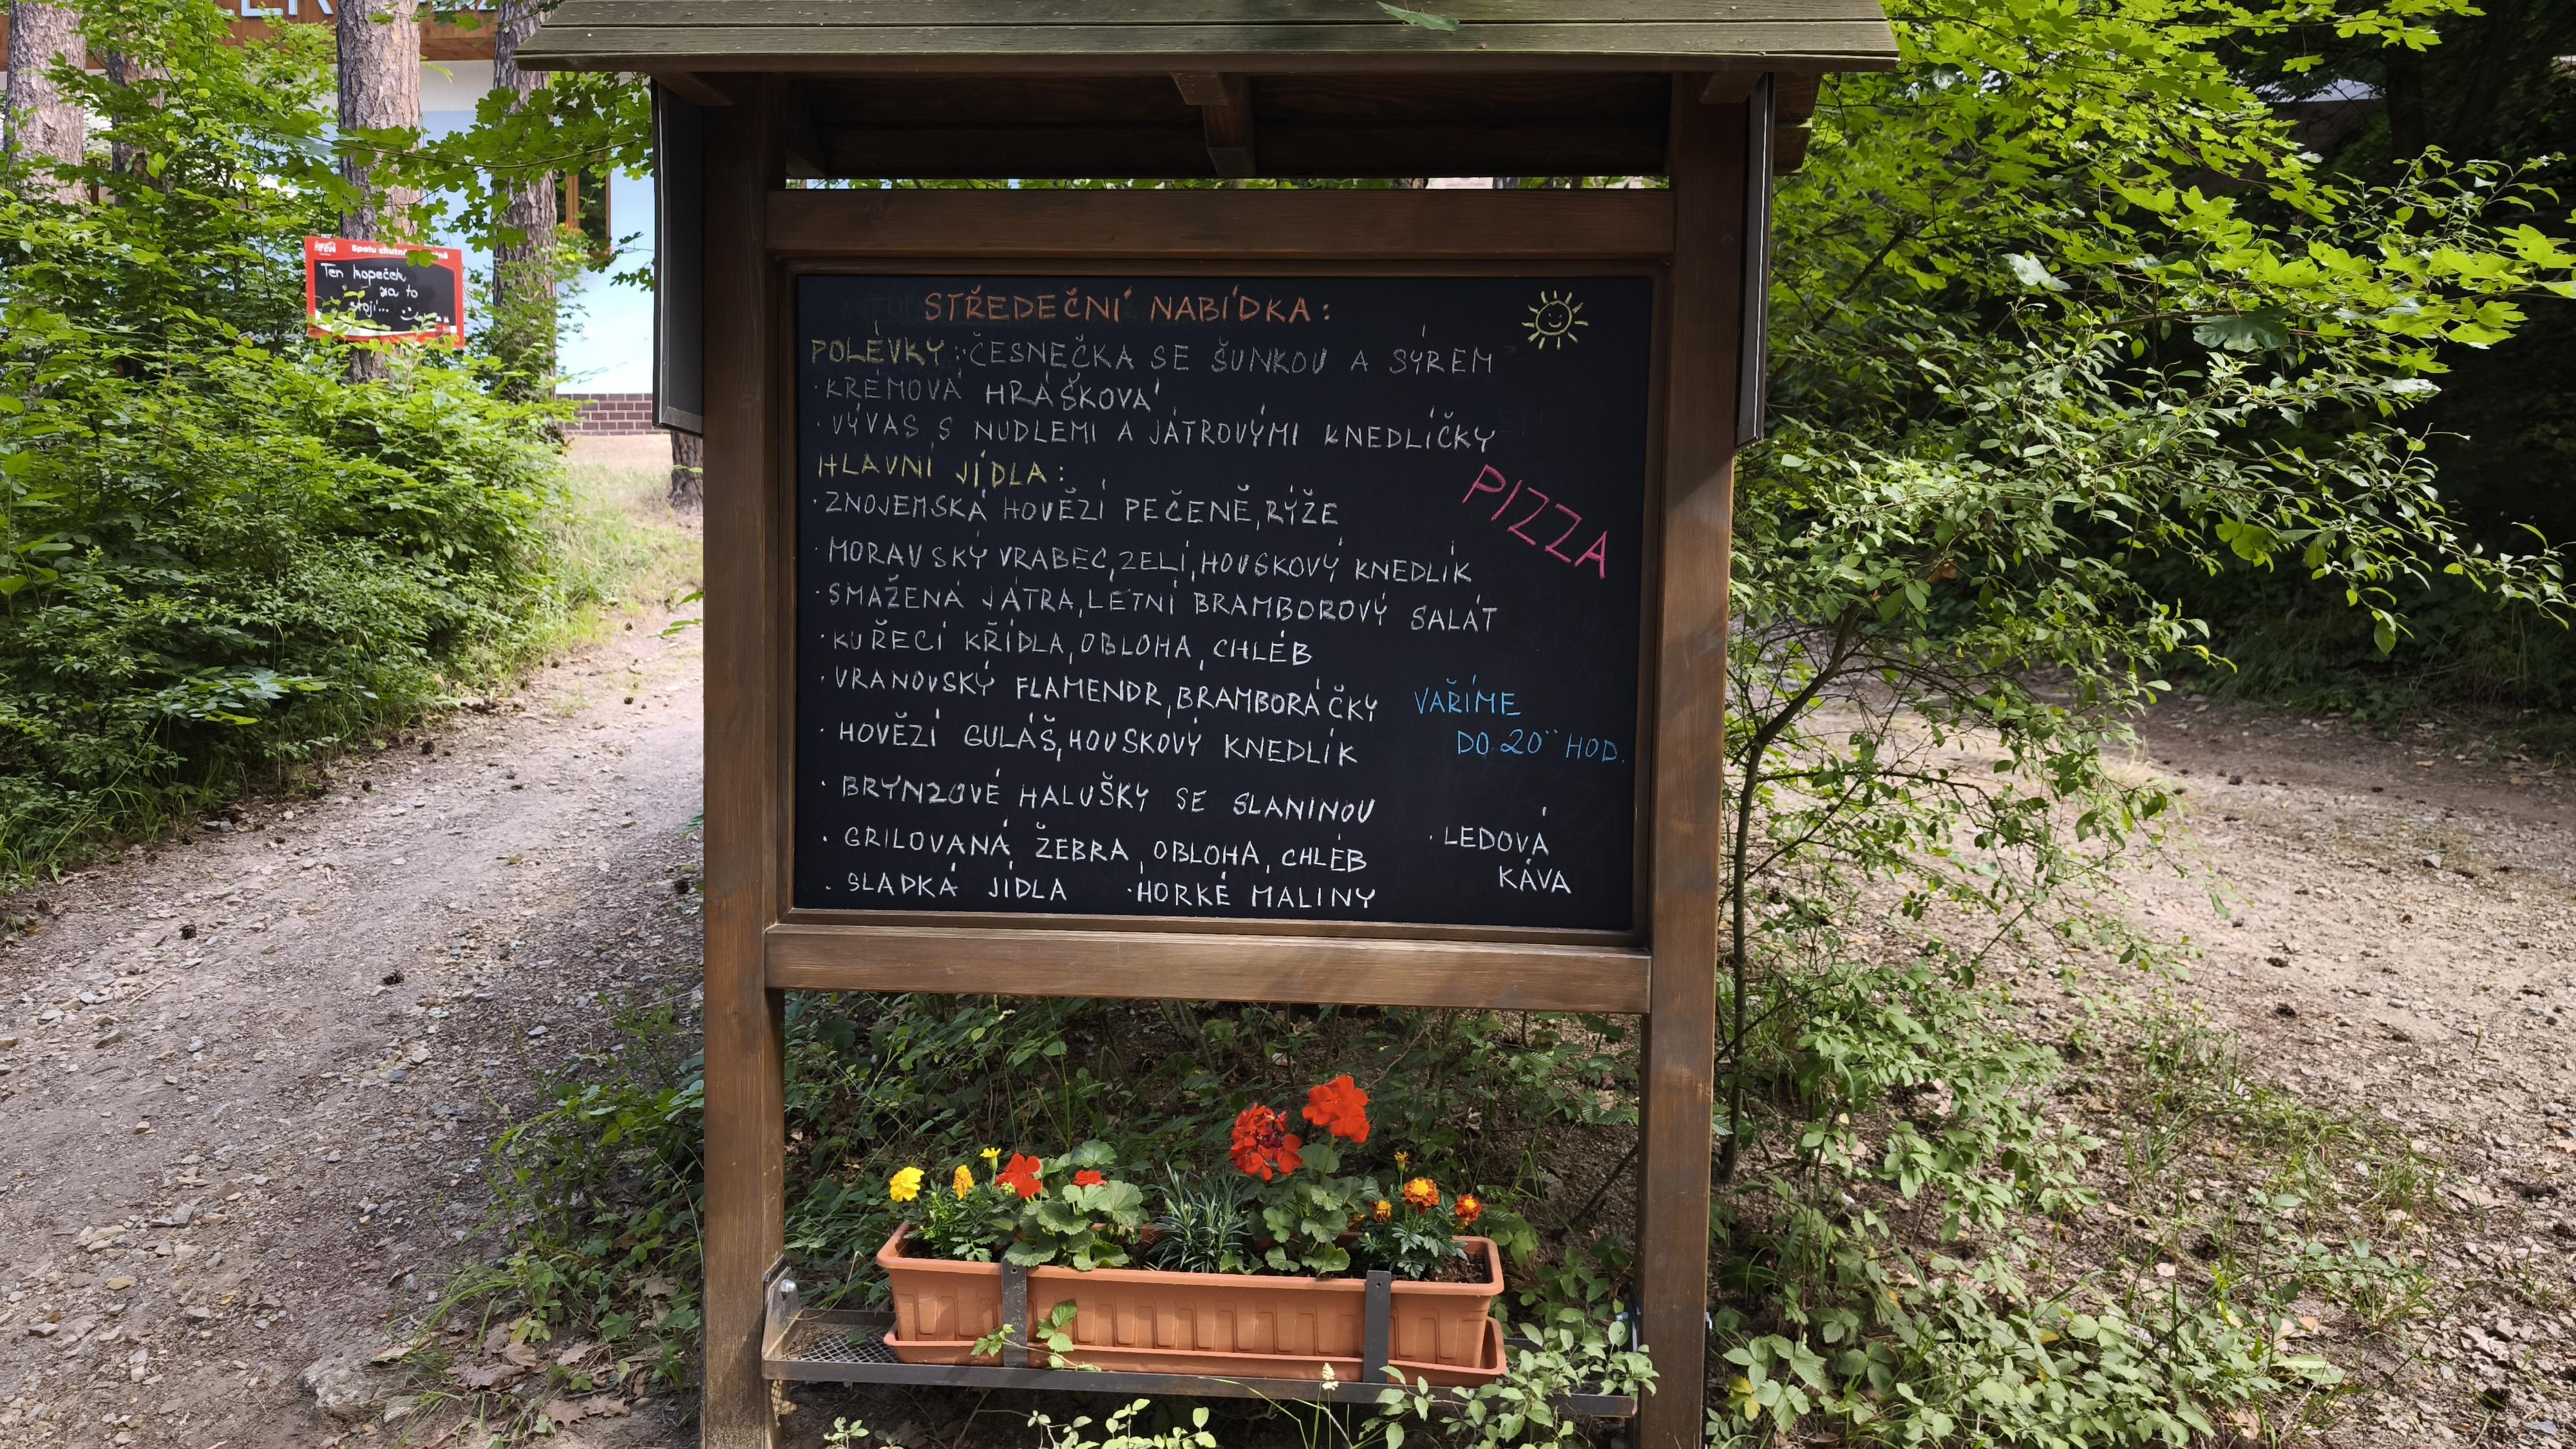 Spolu chutná
Ten kopeček
za to
stojí...
STŘEDEČNÍ NABÍDKA:
POLÉVKY: ČESNEČKA SE ŠUNKOU A SÝREM
· KRÉMOVÁ HRÁŠKOVÁ
· VÝVAS S NUDLEMI A JÁTROVÝMI KNEDLÍČKY
HLAVNÍ JÍDLA:
· ZNOJEMSKÁ HOVĚZÍ PEČENĚ, RÝŽE
· MORAVSKÝ VRABEC, ZELÍ, HOUSKOVÝ KNEDLÍK
· SMAŽENÁ JÁTRA, LETNÍ BRAMBOROVÝ SALÁT
· KUŘECÍ KŘÍDLA, OBLOHA, CHLÉB
· VRANOVSKÝ FLAMENDR, BRAMBORÁČKY
· HOVĚZÍ GULÁŠ, HOUSKOVÝ KNEDLÍK
· BRYNZOVÉ HALUŠKY SE SLANINOU
· GRILOVANÁ ŽEBRA, OBLOHA, CHLÉB
· SLADKÁ JÍDLA · HORKÉ MALINY
PIZZA
VAŘÍME
DO 20°° HOD.
· LEDOVÁ
KÁVA